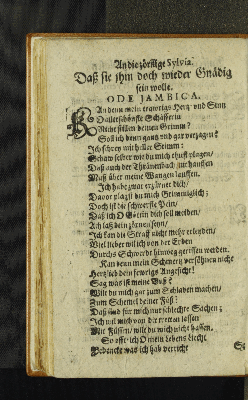 An die zörnige Sylvia.
Daß sie ihm doch wieder Gnädig
sein wolle.
ODE JAMBICA.
KAn denn mein trawrigs Herz und Sinn
O allerschönste Schäfferin
Nicht stillen deinen Grimm?
Sol ich denn gantz und gar verzagen?
Ich schrey mit heller Stimm:
Schaw selber wie du mich thust plagen/
Daß auch der Thränenbach zur hauffen
Muß über meine Wangen lauffen.
Ich habe zwar erzürnet dich/
Davor plagst du mich Grimmiglich;
Doch ist die schwerste Pein/
Daß ich O Göttin dich sol meiden/
Ach laß dein zörnen seyn/
Ich kan die Straff nicht mehr erleyden/
Viel lieber wil ich von der Erden
Durchs Schwerdt hinweg gerissen werden.
Kan denn mein Schmertz versöhnen nicht
Hertzlieb dein fewrigs Angesicht!
Sag was ist meine Buß?
Wilt du mich gar zum Schlaven machen/
Zum Schemel deiner Füß?
Daß sind für mich nur schlechte Sachen;
Ich wil mich von dir tretten lassen
Mit Füssen/ wilt du mich nicht hassen.
So offt ich O mein Lebens Liecht
Gedencke was ich hab verricht